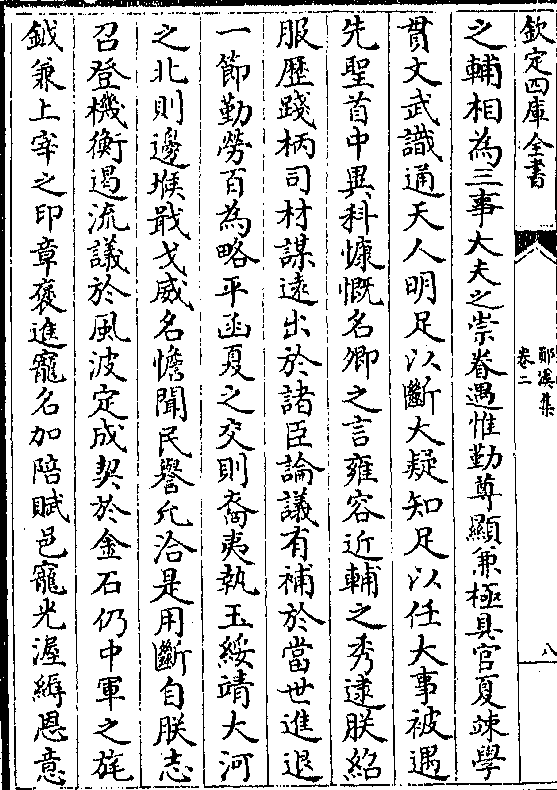 欽定四庫全書
鄖溪集
卷二
八
之輔相為三事大夫之崇眷遇惟勤尊顯兼極具官夏竦學
貫文武識通天人明足以斷大疑知足以任大事被遇
先聖首中異科慷慨名卿之言雍容近輔之秀逮朕紹
服歷踐柄司材謀遠出於諸臣論議有補於當世進退
一節勤勞百為略平函夏之交則裔夷執玉綏靖大河
之北則邊堠戢戈威名憺聞民譽允洽是用斷自朕志
召登機衡遏流議於風波定成契於金石仍中軍之旄
鉞兼上宰之印章褒進寵名加陪賦邑寵光渥縟恩意